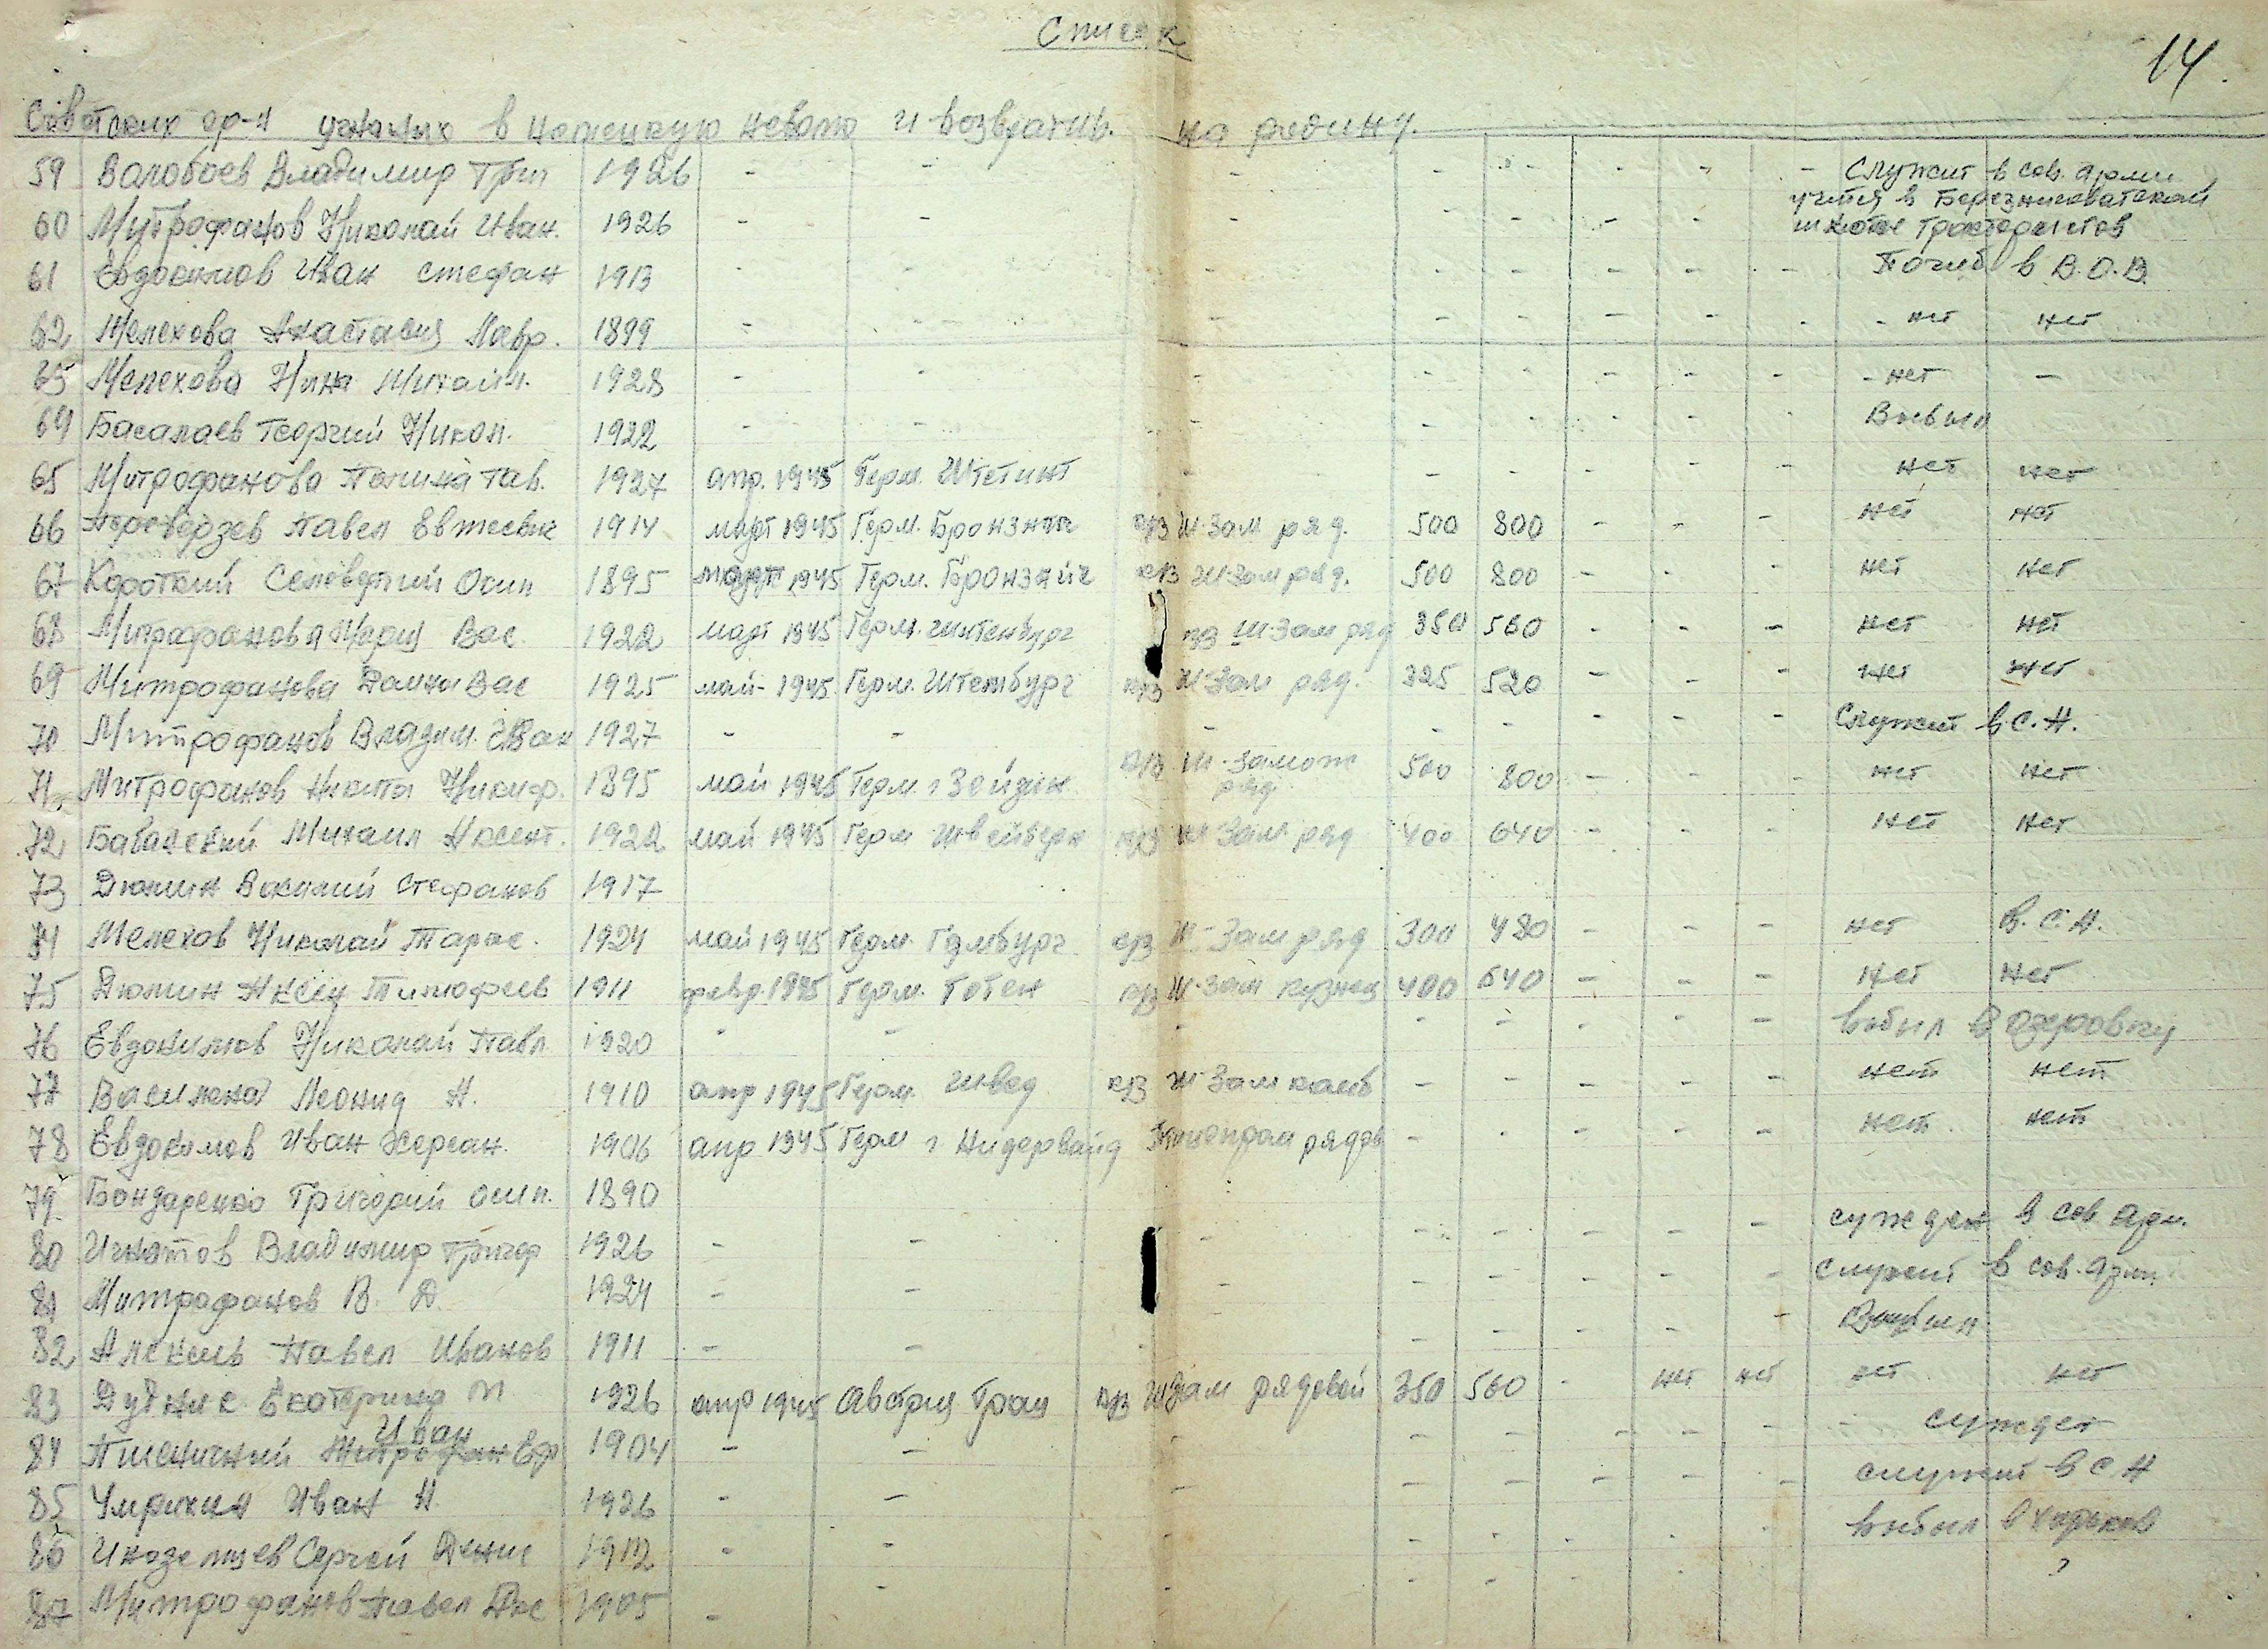 Список
14.
Советских гр-н угнаных в немецкую неволю и возвратив. на родину.
59 Волобоев Владимир Григ 1926 - - - - - - - - Служит в сов. арми
60 Митрофанов Николай Иван. 1926 - - - - - - - учится в Березниговатской
школе трактористов
61 Евдокимов Иван Стефан 1913 - - - - - - - - Погиб в В.О.В.
62 Мелехова Анастасия Лавр. 1899 - - - - - - - - нет нет
63 Мелехова Нина Михайл. 1928 - - - - - - - - нет -
64 Басалаев Георгий Никол. 1922 - - - - - - - - Выбыл
65 Митрофанова Полина Пав. 1927 апр. 1945 Герм. Штетинт - - - - - - нет нет
66 Переверзев Павел Евтеевич 1914 март 1945 Герм. к/з Ш-Зам ряд. 500 800 - - - нет нет
67 Короткий Селеверстий Осип 1895 март 1945 Герм. к/з Ш-Зам ряд. 500 800 - - - нет нет
68 Митрофанова Мария Вас. 1922 март 1945 Герм. к/з Ш-Зам ряд 350 560 - - - нет нет
69 Митрофанова Домна Вас 1925 май- 1945 Герм. Штетбург к/з Ш-Зам ряд. 325 520 - - - нет нет
70 Митрофанов Владим. Иван 1927 - - - - - - - - Служит в С.А.
71 Митрофанов Никита Никиф. 1895 май 1945 Герм. г к/з Ш-Заможн
ряд 500 800 - - - нет нет
72 Бабанский Михаил Аксент. 1922 май 1945 Герм к/з Ш Зам ряд 400 640 - - - нет нет
73 Дюмин Василий Стефанов 1917
74 Мелехов Николай Тарас. 1924 май 1945 Герм. Гамбург к/з Ш-Зам ряд 300 480 - - - нет в. С.А.
75 Дюмин Аксен Тимофеев 1911 февр. 1945 Герм. Готен к/з Ш-Зам кузнец 400 640 - - - нет нет
76 Евдокимов Николай Павл. 1920 - - - - - - - - выбыл в
77 Василена Леонид А. 1910 апр 1945 Герм. Швед к/з Ш-Зам комб - - - - - нет нет
78 Евдокимов Иван Херсан. 1906 апр 1945 Герм г Нидервайд рядов - - - - - нет нет
79 Бондаренко Григорий Осип. 1890
80 Игнатов Владимир Григор 1926 - - - - - - - - сужден в сов арм.
81 Митрофанов В. Д. 1924 - - - - - - - - служит в сов. арми
82 Алексив Павел Иванов 1911 - - - - - - - - Выбыл
83 Дудник Екатерина М 1926 апр 1945 Австрия Грац к/з Ш Зам рядовой 350 560 - нет нет нет нет
84 Пшеничный Иван Еф 1904 - - - - - - - - сужден
85 Умрихин Иван А. 1926 - - - - - - - - служит в С А
86 Иноземцев Сергей Денис 1912 - - - - - - - - выбыл в Харьков
87 Митрофанов Павел 1905 - - - - - ?